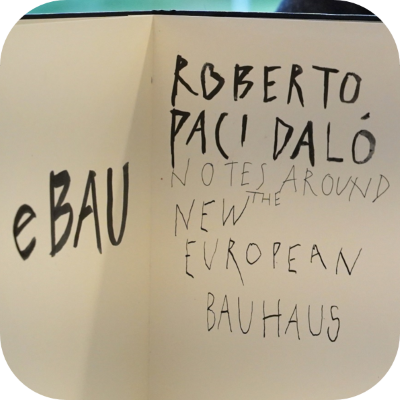 eBAU
ROBERTO
PACI DALÓ
NOTES AROUND
THE
NEW
EUROPEAN
BAUHAUS